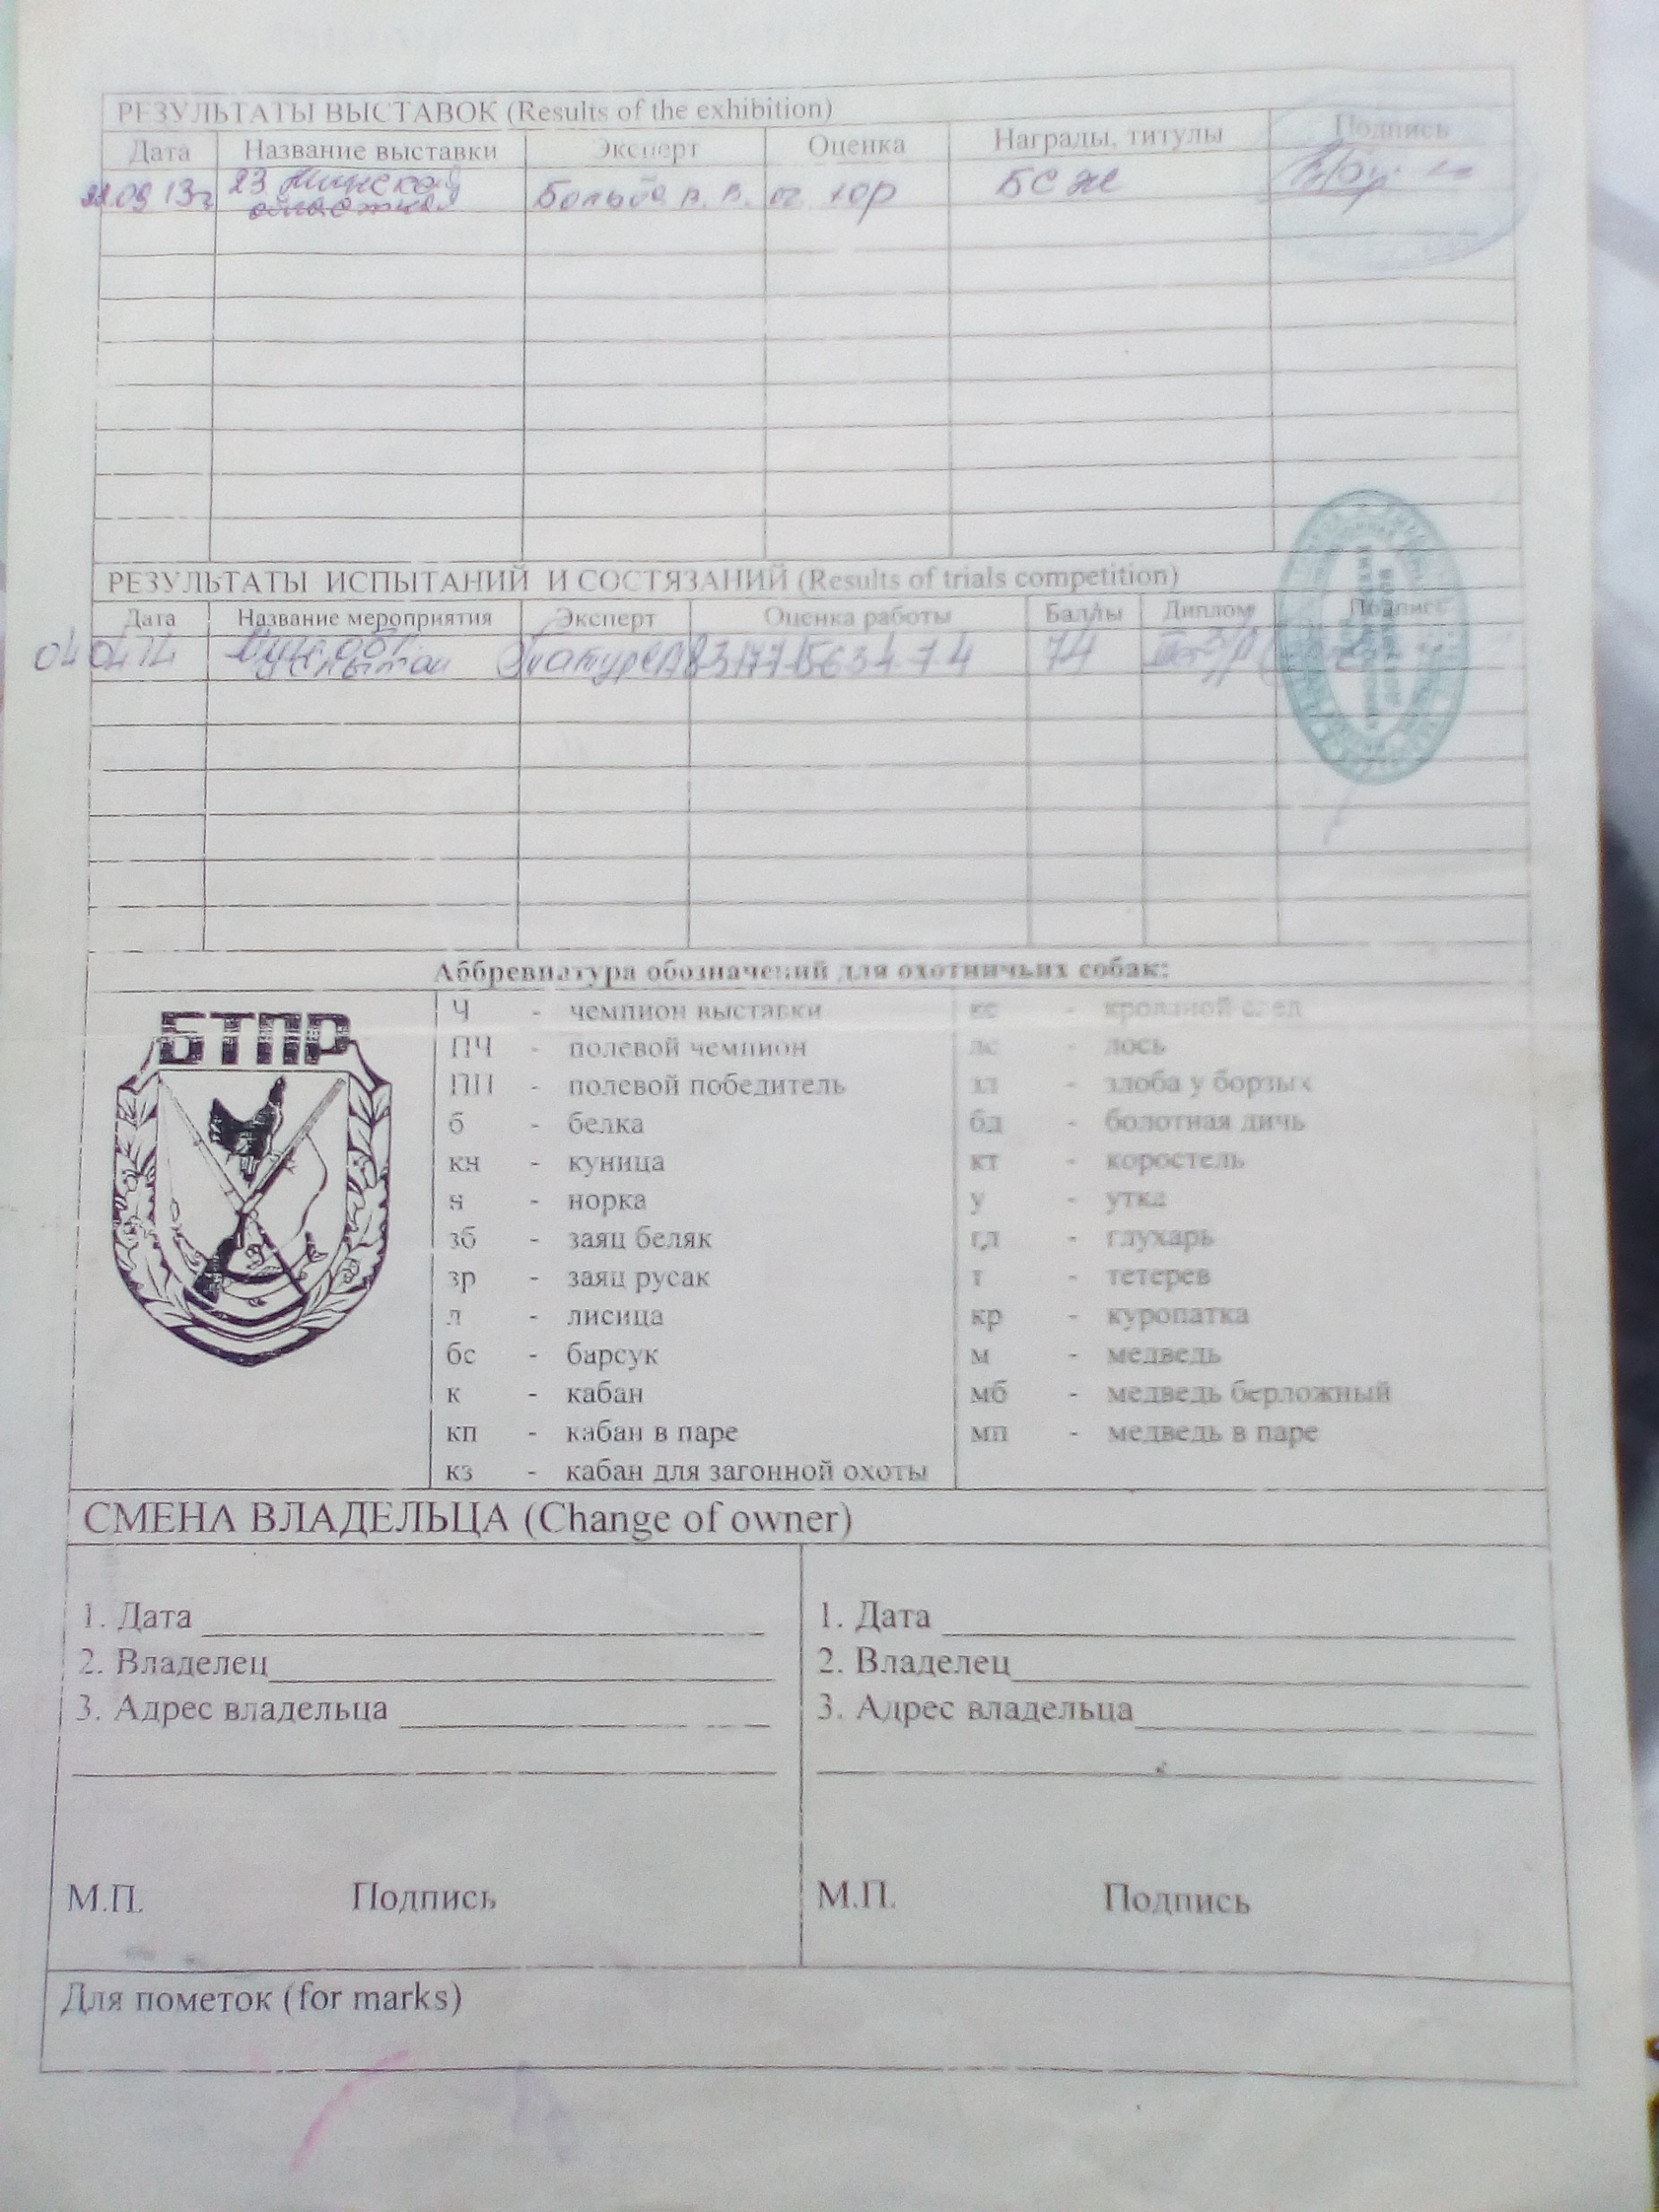 РЕЗУЛЬТАТЫ ВЫСТАВОК (Results of the exhibition)
Дата Название выставки Эксперт Оценка Награды, титулы Подпись
22.09 13г 23 Минская оч. хор БСЖ
областная
РЕЗУЛЬТАТЫ ИСПЫТАНИЙ И СОСТЯЗАНИЙ (Results of trials competition)
Дата Название мероприятия Эксперт Оценка работы Баллы Диплом Подпись
04 04 14 74
Аббревиатура обозначений для охотничьих собак:
БТПР
Ч - чемпион выставки
ПЧ - полевой чемпион
ПП - полевой победитель
б - белка
кн - куница
н - норка
зб - заяц беляк
зр - заяц русак
л - лисица
бс - барсук
к - кабан
кп - кабан в паре
кз - кабан для загонной охоты
кс - кровяной след
лс - лось
зл - злоба у борзых
бд - болотная дичь
кт - коростель
у - утка
гл - глухарь
т - тетерев
кр - куропатка
м - медведь
мб - медведь берложный
мп - медведь в паре
СМЕНА ВЛАДЕЛЬЦА (Change of owner)
1. Дата
2. Владелец
3. Адрес владельца
М.П. Подпись
1. Дата
2. Владелец
3. Адрес владельца
М.П. Подпись
Для пометок (for marks)